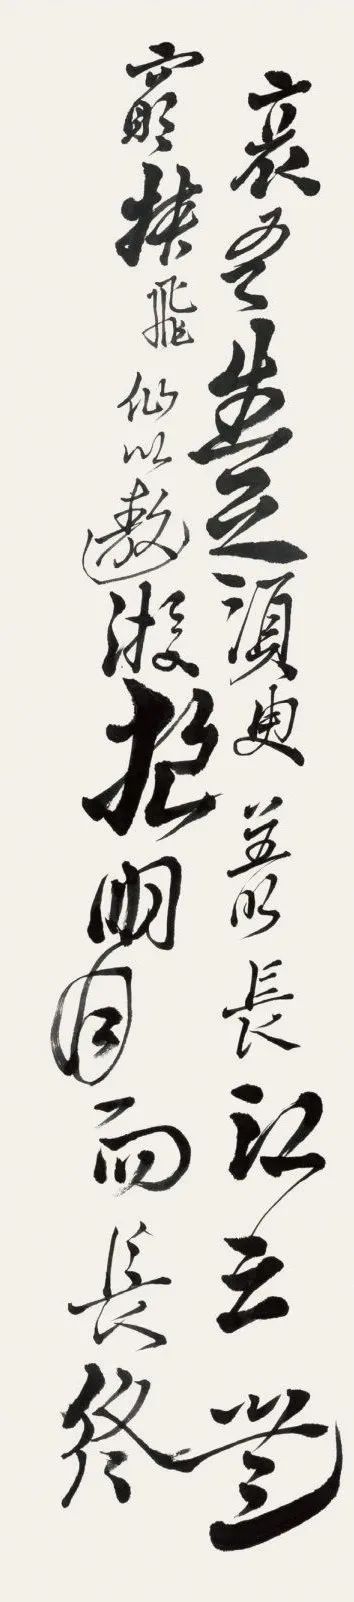 哀吾生之須臾羡長江之無
窮挾飛仙以遨遊抱明月而長終